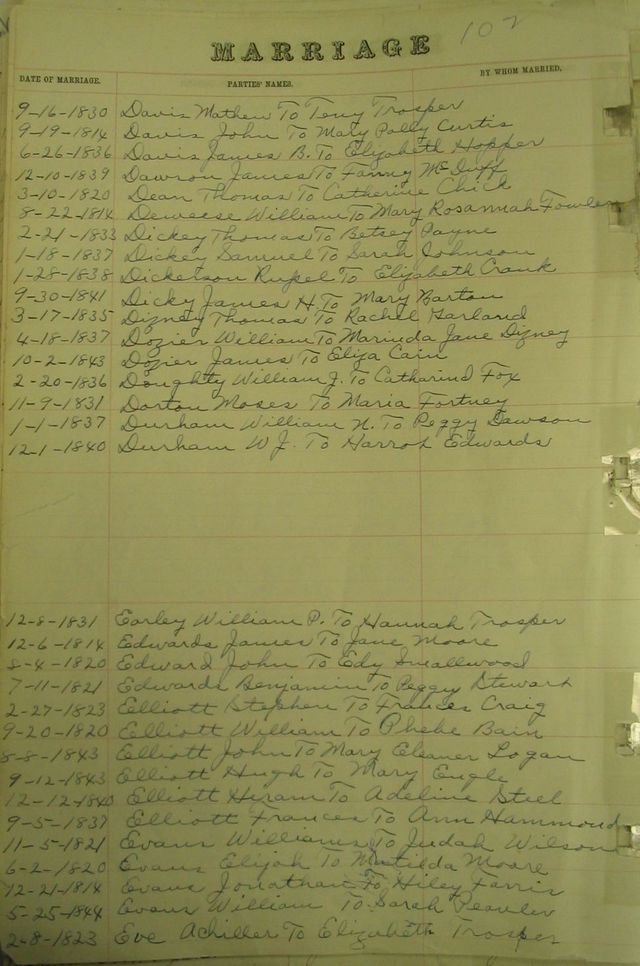 102
MARRIAGE
DATE OF MARRIAGE. PARTIES' NAMES. BY WHOM MARRIED.
9-16-1830 Davis Mathew To Teny Trosper
9-19-1814 Davis John To Maly Polly Curtis
6-26-1836 Davis James B. To Elizabeth Hopper
12-10-1839 Dawson James To Fanny McDuff
3-10-1820 Dean Thomas To Catherine Chick
8-22-1814 Deweese William To Mary Rosannah Fowler
2-21-1833 Dickey Thomas To Betsey Payne
1-18-1837 Dickey Samuel To Sarah Johnson
1-28-1838 Dickenson To Elizabeth Crank
9-30-1841 Dicky James H. To Mary Barton
3-17-1835 Dizney Thomas To Rachel Garland
4-18-1837 Dozier William To Marinda Jane Dizney
10-2-1843 Dozier James To Eliza Cain
2-20-1836 Doughty William J. To Catharind Fox
11-9-1831 Dorton Moses To Maria Fortney
1-1-1837 Durham William N. To Peggy Dawson
12-1-1840 Durham W J. To Edwards
12-8-1831 Earley William P. To Hannah Trosper
12-6-1814 Edwards James To Jane Moore
8-4-1820 Edward John To Edy Smallwood
7-11-1821 Edwards Benjamin To Peggy Stewart
2-27-1823 Elliott Stephen To Frances Craig
9-20-1820 Elliott William To Phebe Bain
8-8-1843 Elliott John To Mary Eleaner Logan
9-12-1843 Elliott Hugh To Mary Engle
12-12-1840 Elliott Hiram To Adeline Steel
9-5-1837 Elliott Frances To Ann Hammond
11-5-1821 Evans Williams To Judah Wilson
6-2-1820 Evans Elijah To Matilda Moore
12-21-1814 Evans Jonathan To Hiley Farris
5-25-1844 Evans William To Sarah
2-8-1823 Eve Achiller To Elizabeth Trosper